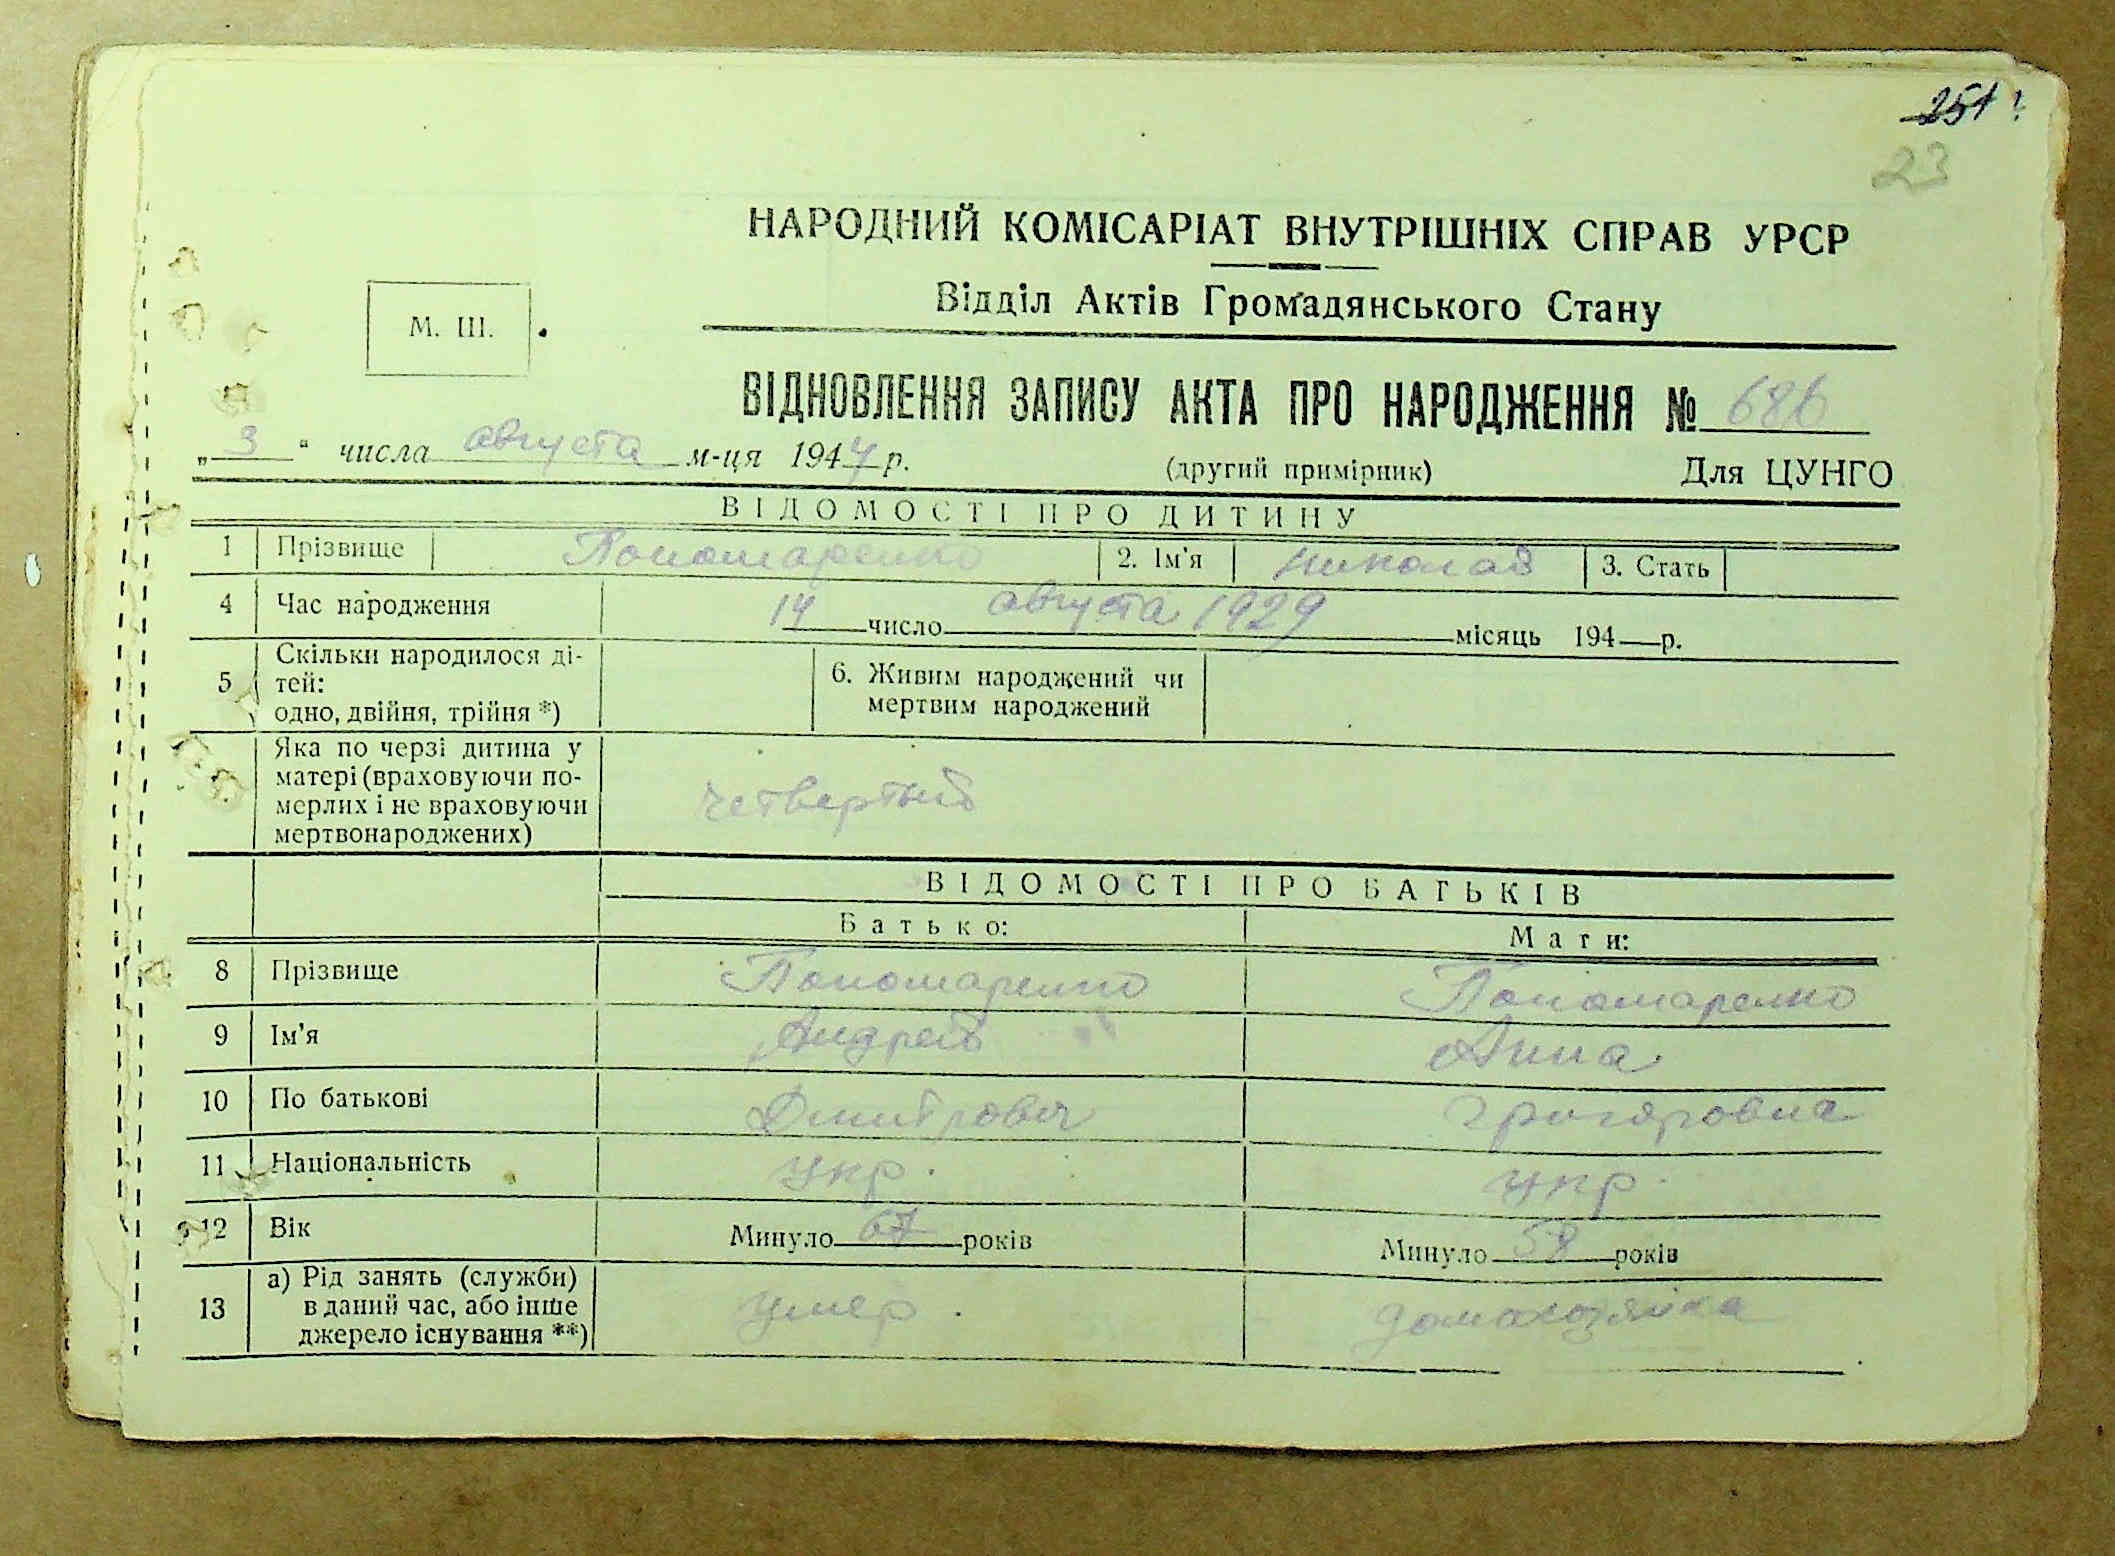 251
23
НАРОДНИЙ КОМІСАРІАТ ВНУТРІШНІХ СПРАВ УРСР
Відділ Актів Громадянського Стану
М. Ш.
ВІДНОВЛЕННЯ ЗАПИСУ АКТА ПРО НАРОДЖЕННЯ № 686
„3“ числа августа м-ця 1944 р.
(другий примірник) Для ЦУНГО
ВІДОМОСТІ ПРО ДИТИНУ
1 Прізвище Пономаренко 2. Ім'я Николай 3. Стать
4 Час народження 14 число августа 1929 місяць 194 р.
5 Скільки народилося ді-
тей:
одно, двійня, трійня *)
6. Живим народжений чи
мертвим народжений
Яка по черзі дитина у
матері (враховуючи по-
мерлих і не враховуючи
мертвонароджених)
четвертый
ВІДОМОСТІ ПРО БАТЬКІВ
Батько: Мати:
8 Прізвище Пономаренко Пономаренко
9 Ім'я Андрей Анна
10 По батькові Дмитрович Григоровна
11 Національність укр. укр.
12 Вік Минуло 67 років Минуло 58 років
13 а) Рід занять (служби)
в даний час, або інше
джерело існування **)
умер. домохозяйка